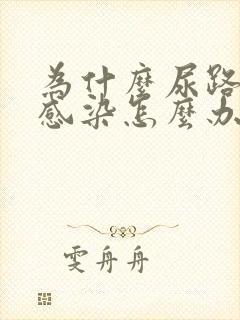 為什麼尿路
感染怎麼办
雯舟舟